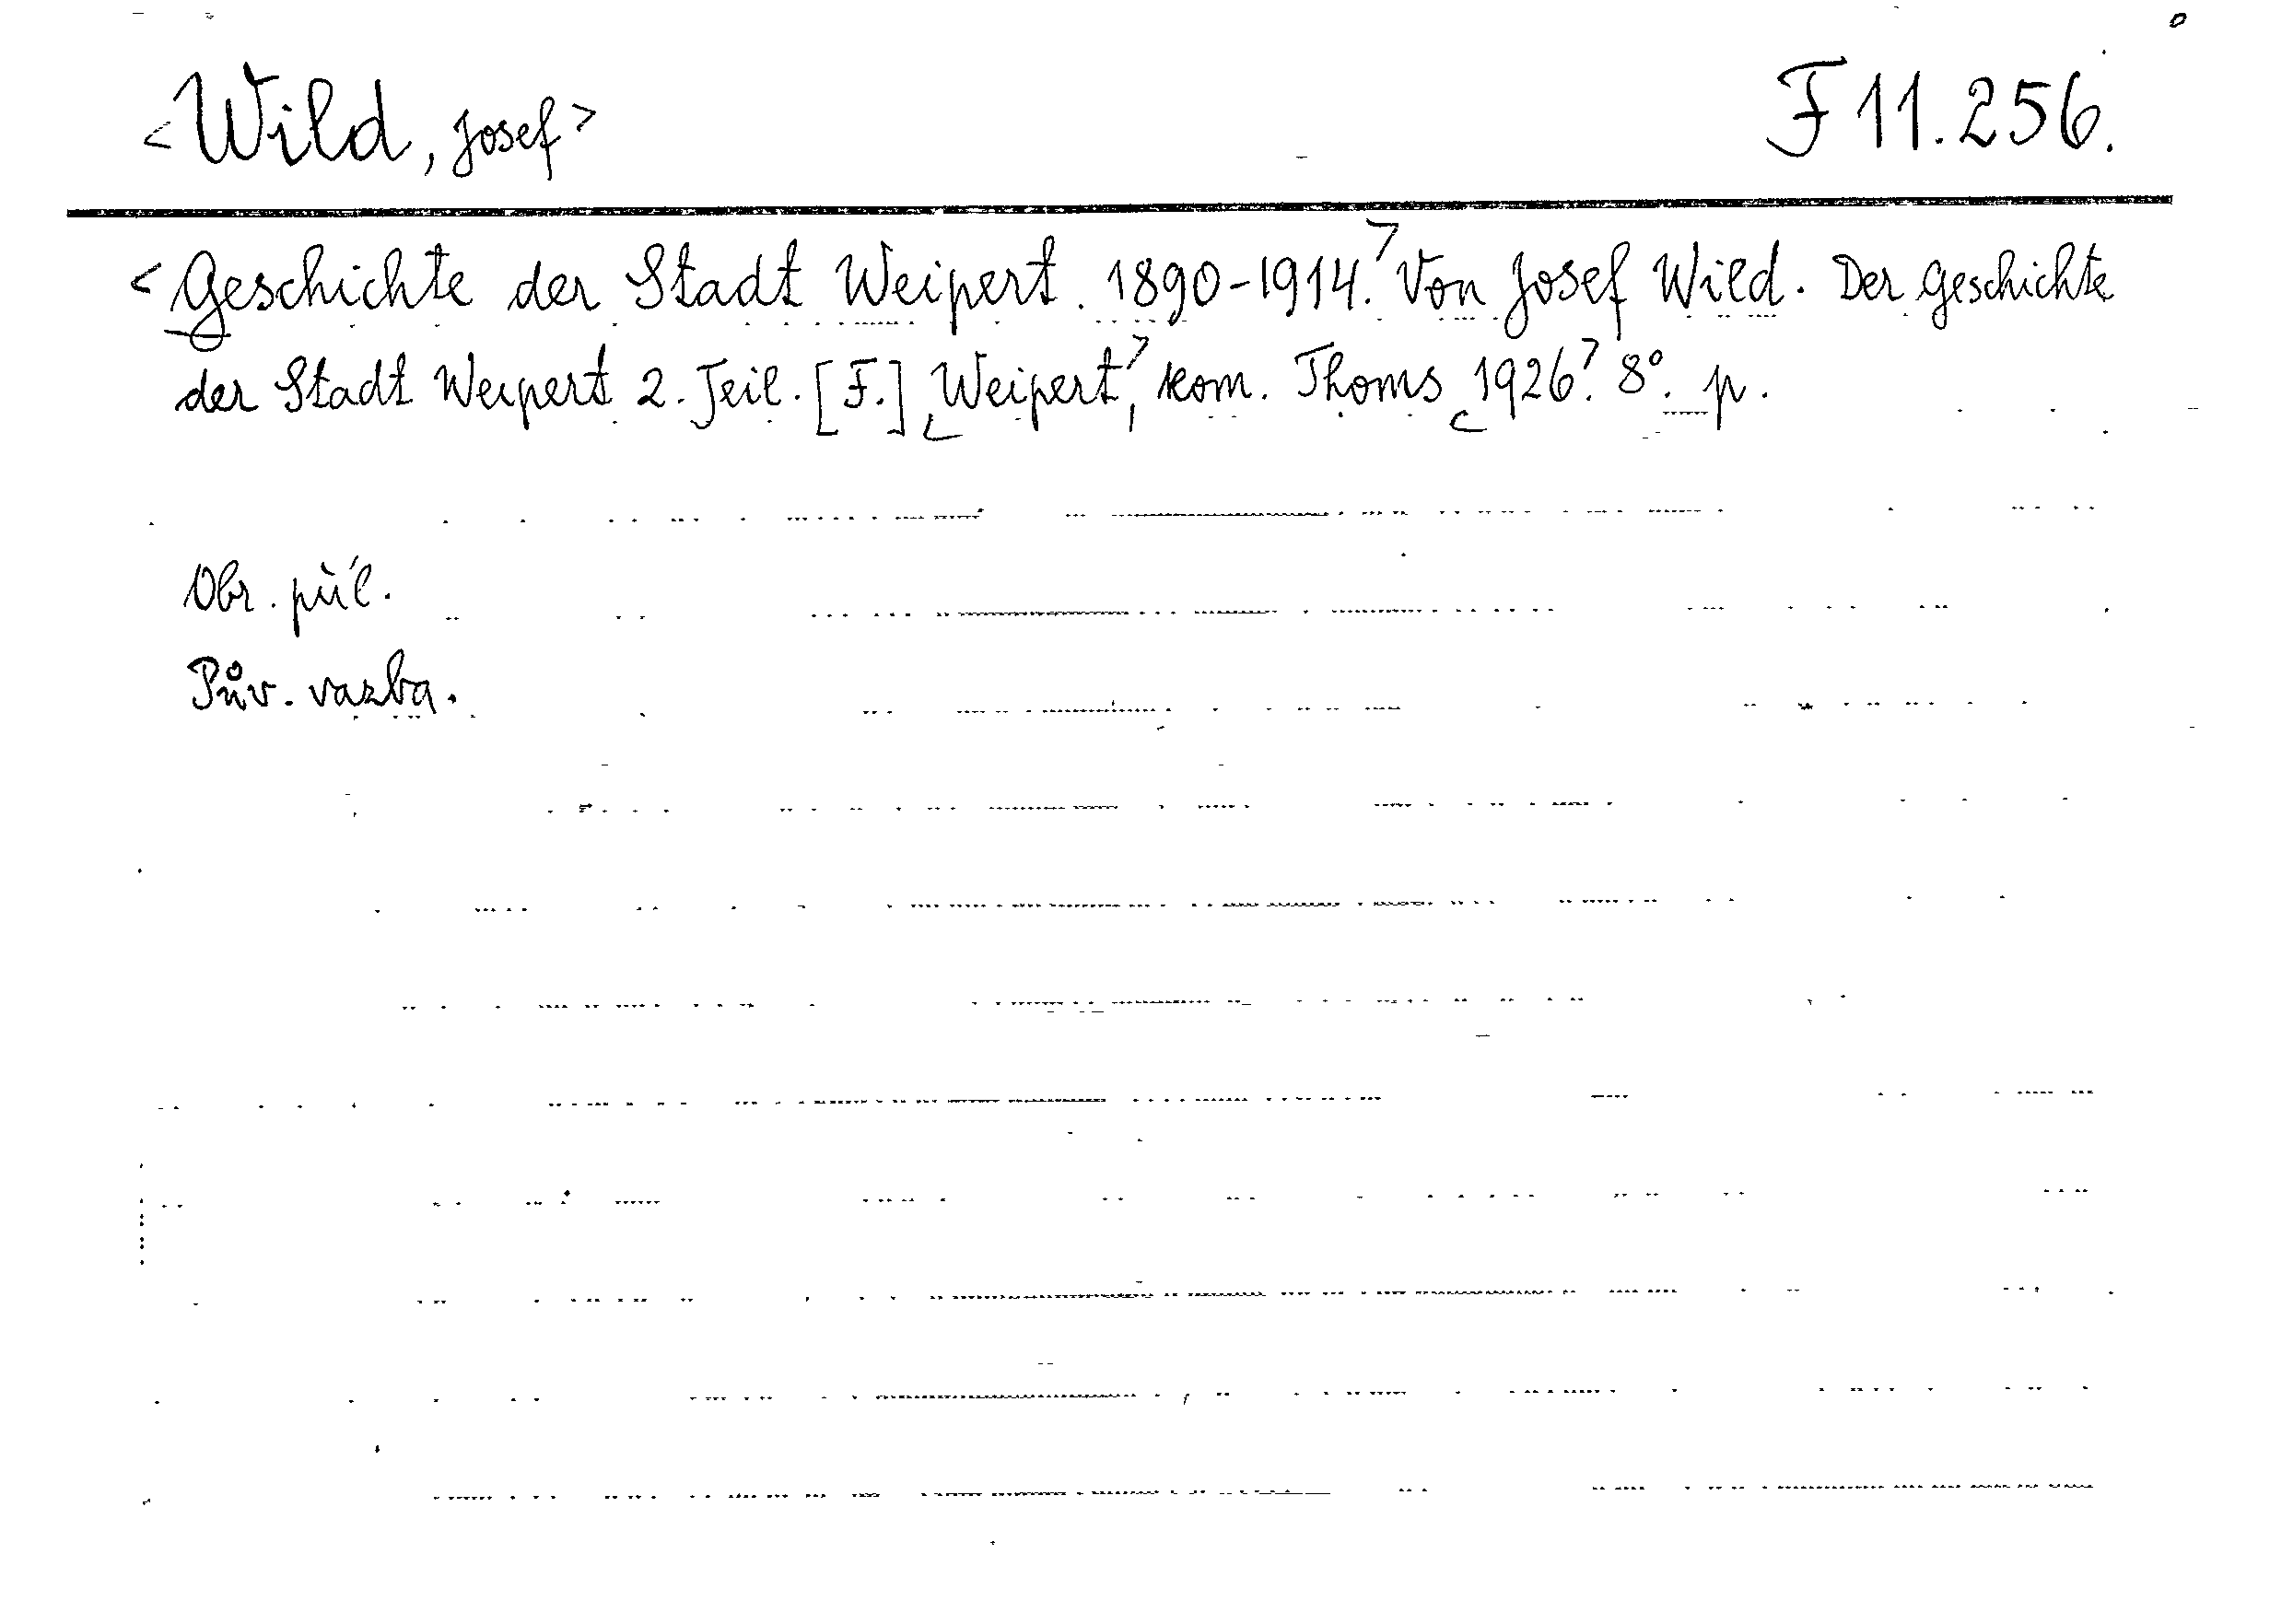 <Wild, Josef> F 11.256.
<Geschichte der Stadt Weipert. 1890-1914.> Von Josef Wild. Der Geschichte
der Stadt Weipert 2. Teil. [F.] <Weipert>, kom. Thoms <1926>. 8°. p.
Obr. příl.
Pův. vazba.